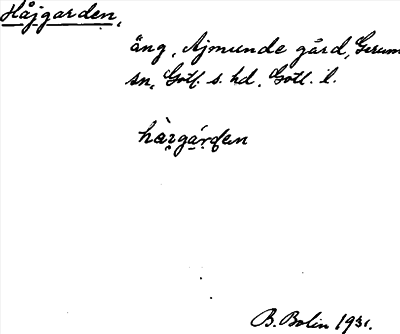 Håjgarden,
äng, Ajmunde gård, Gerum
sn, Gotl. s. hd, Gotl. l.
hàrgárden
B. Bolin 1931.